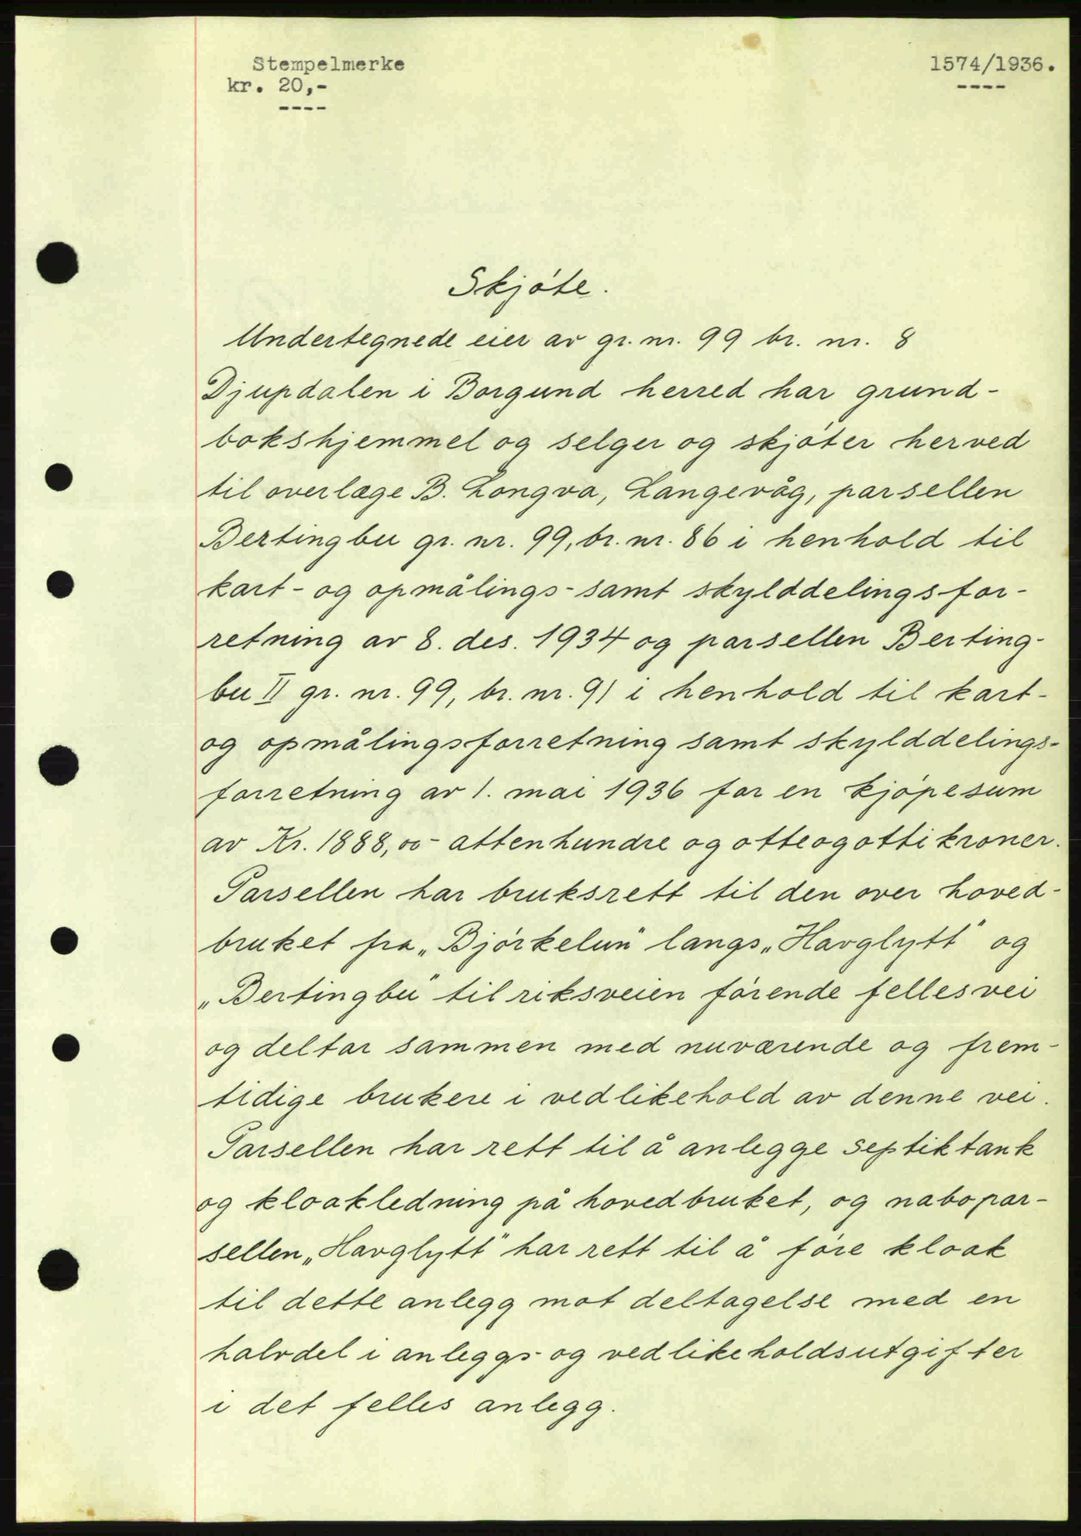 Stempelmerke
kr. 20,-
----
1574/1936.
----
Skjóte.
Undertegnede eier av gr. nr. 99 br. nr. 8
Djupdalen i Borgund herred har grund-
bokshjemmel og selger og skjóter herved
til overlæge B. Longva, Langevåg, parsellen
Bertingbu gr. nr. 99, br. nr. 86 i henhold til
kart- og opmålings- samt skylddelingsfor-
retning av 8. des. 1934 og parsellen Berting-
bu II gr. nr. 99, br. nr. 91 i henhold til kart-
og opmålingsforretning samt skylddelings-
forretning av 1. mai 1936 for en kjópesum
av Kr. 1888,00 - attenhundre og otteogotti kroner.
Parsellen har bruksrett til den over hoved-
bruket fra „Bjórkelun" langs „Havglytt" og
„Bertingbu" til riksveien fórende fellesvei
og deltar sammen med nuværende og frem-
tidige brukere i vedlikehold av denne vei.
Parsellen har rett til å anlegge septiktank
og kloakledning på hovedbruket, og nabopar-
sellen „Havglytt" har rett til å fóre kloak
til dette anlegg mot deltagelse med en
halvdel i anleggs- og vedlikeholdsutgifter
i det felles anlegg.